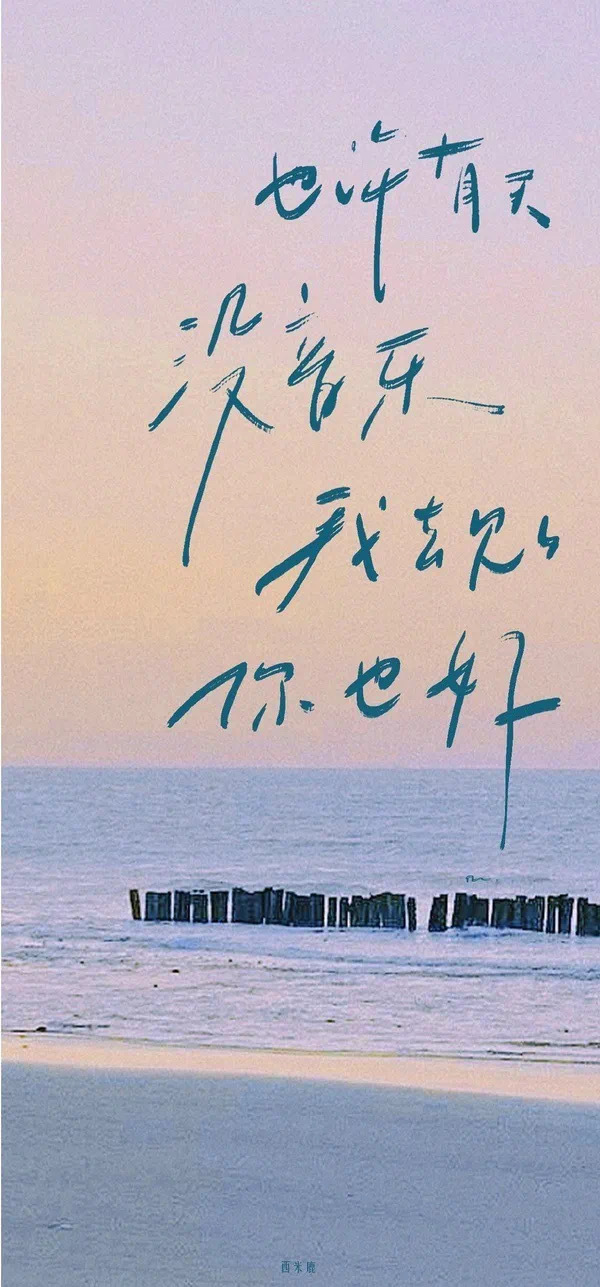 也许有天
没音乐
我去见
你也好
西米鹿